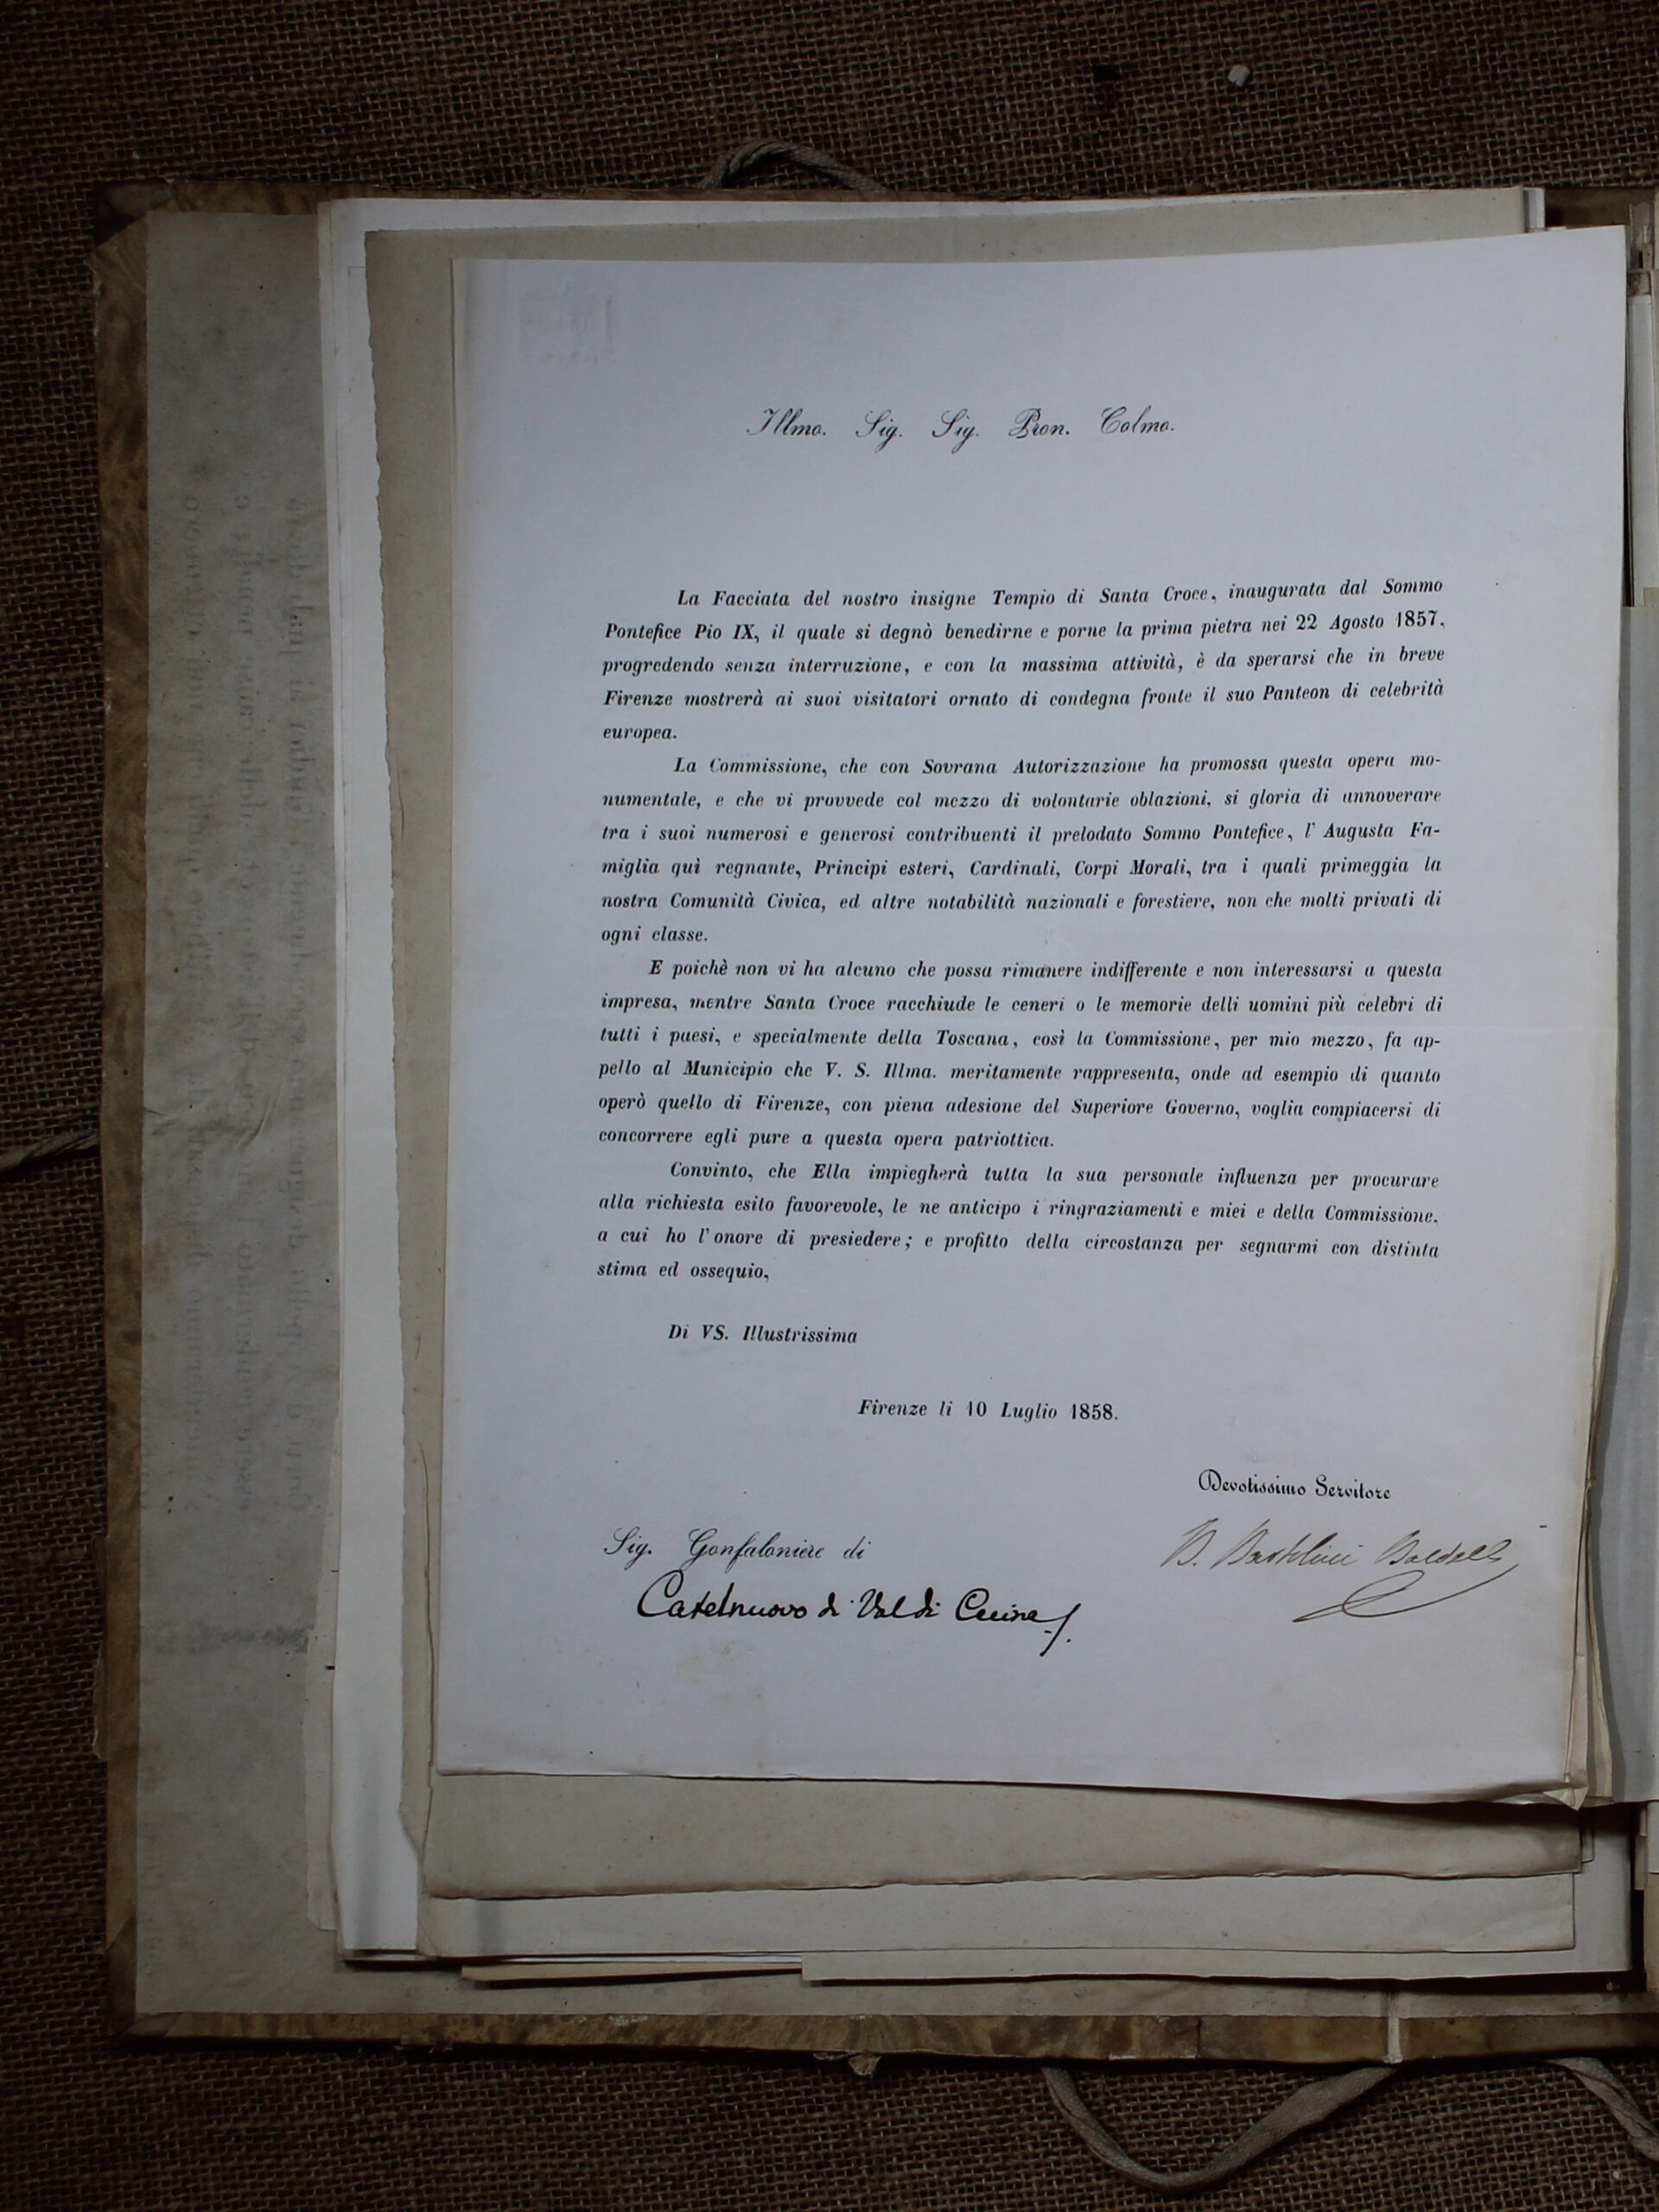 Illmo. Sig. Sig. Pron. Colmo.
La Facciata del nostro insigne Tempio di Santa Croce, inaugurata dal Sommo
Pontefice Pio IX, il quale si degnò benedirne e porne la prima pietra nei 22 Agosto 1857,
progredendo senza interruzione, e con la massima attività, è da sperarsi che in breve
Firenze mostrerà ai suoi visitatori ornato di condegna fronte il suo Panteon di celebrità
europea.
La Commissione, che con Sovrana Autorizzazione ha promossa questa opera mo-
numentale, e che vi provvede col mezzo di volontarie oblazioni, si gloria di annoverare
tra i suoi numerosi e generosi contribuenti il prelodato Sommo Pontefice, l' Augusta Fa-
miglia quì regnante, Principi esteri, Cardinali, Corpi Morali, tra i quali primeggia la
nostra Comunità Civica, ed altre notabilità nazionali e forestiere, non che molti privati di
ogni classe.
E poichè non vi ha alcuno che possa rimanere indifferente e non interessarsi a questa
impresa, mentre Santa Croce racchiude le ceneri o le memorie delli uomini più celebri di
tutti i paesi, e specialmente della Toscana, così la Commissione, per mio mezzo, fa ap-
pello al Municipio che V. S. Illma. meritamente rappresenta, onde ad esempio di quanto
operò quello di Firenze, con piena adesione del Superiore Governo, voglia compiacersi di
concorrere egli pure a questa opera patriottica.
Convinto, che Ella impiegherà tutta la sua personale influenza per procurare
alla richiesta esito favorevole, le ne anticipo i ringraziamenti e miei e della Commissione,
a cui ho l'onore di presiedere; e profitto della circostanza per segnarmi con distinta
stima ed ossequio,
Di VS. Illustrissima
Firenze li 10 Luglio 1858.
Devotissimo Servitore
Sig. Gonfaloniere di
B. Bartolini Baldelli
Castelnuovo di Val di Cecina